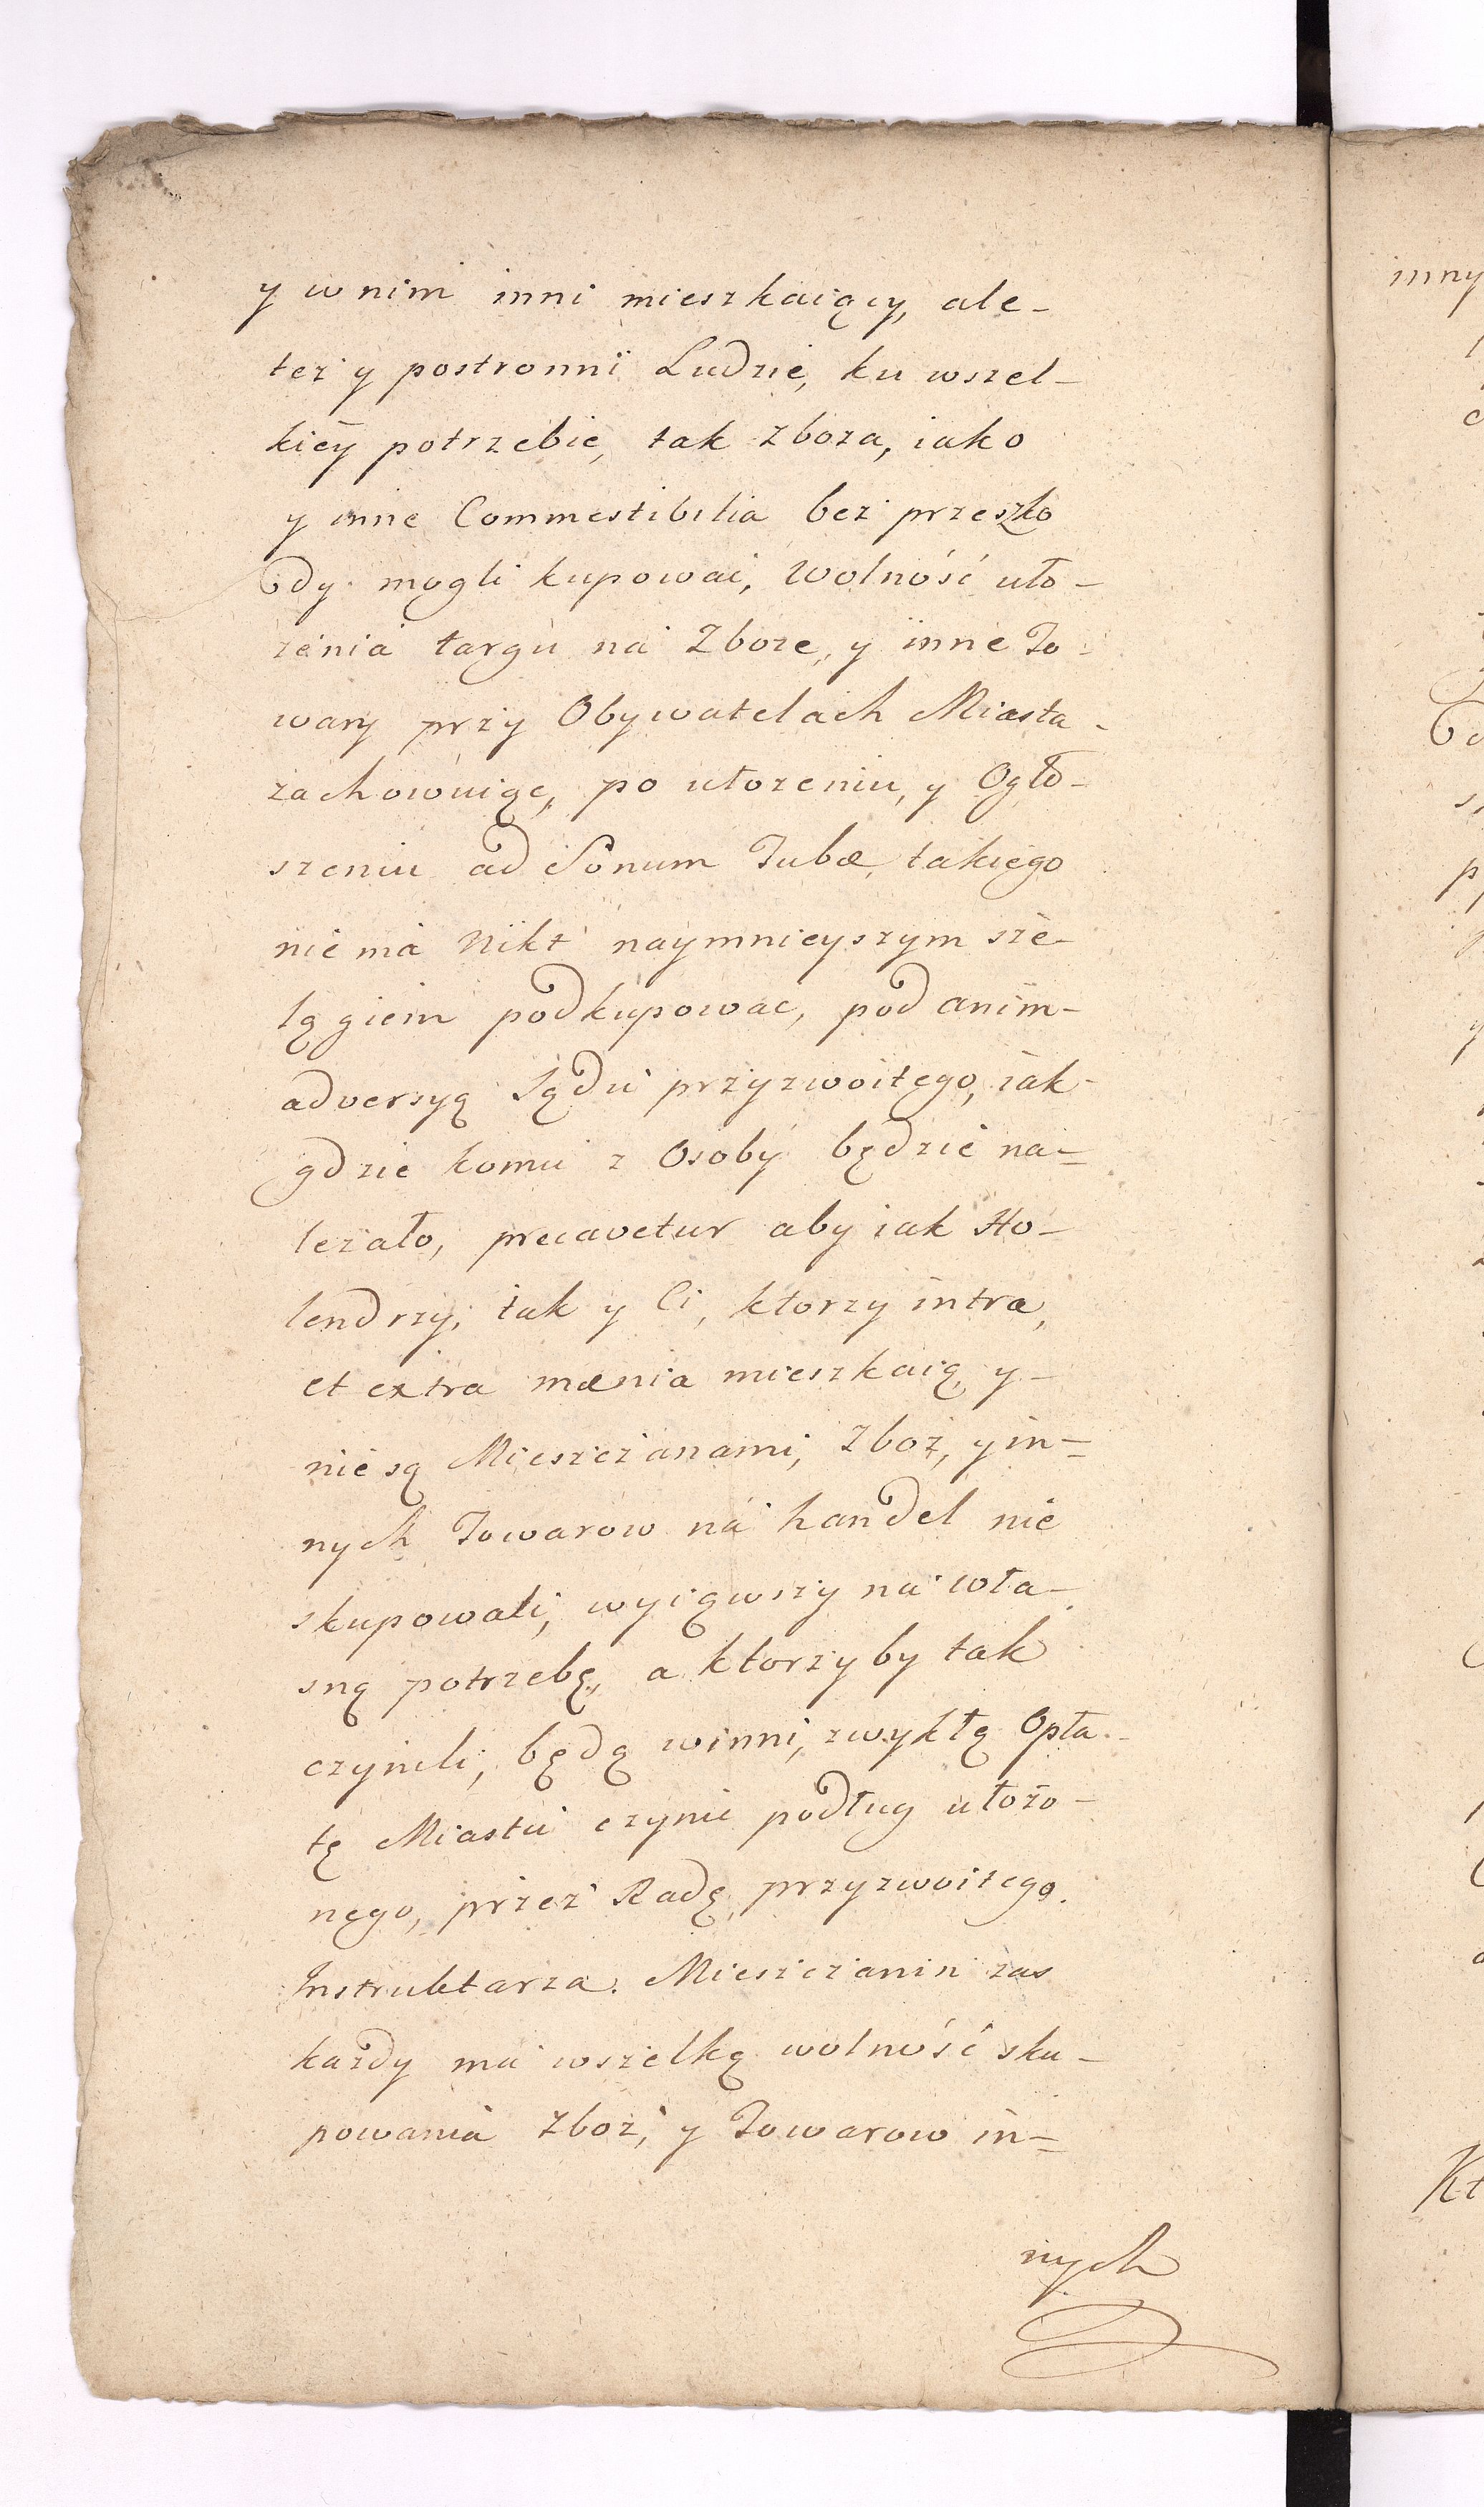 y w nim inni mieszkaiący, ale-
też y postronni Ludzie, ku wszel-
kiëy potrzebie, tak zboża, iako
y inne Commestibilia bez przeszko
dy mogli kupować, Wolność uło-
żenia targu na Zboże, y inne To-
wary przy Obywatelach Miasta-
zachowuiąc, po ułożeniu, y Ogło-
szeniu ad Sonum Tubæ, takiego
nie ma Nikt naymnieyszym sze-
lągiem podkupować, pod anim-
adversyą Sądu przyzwoitego, iak-
gdzie komu z Osoby będzie na=
leżało, precavetur aby iak Ho-
lendrzy, tak y Ci, ktorzy intra,
et extra mænia mieszkaią, y-
nie są Mieszczanami, Zboż, y in=
nych Towarow na handel nie
skupowali, wyiąwszy na wła-
sną potrzebę, a ktorzyby tak
czynili, będą winni, zwykłą Opła-
tę Miastu czynić podług ułożo-
nego, przez Radę, przyzwoitego.
Instruktarza. Mieszczanin zas
każdy ma wszelką wolność sku-
powania Zboż, y Towarow in=
nych
inny
Kt